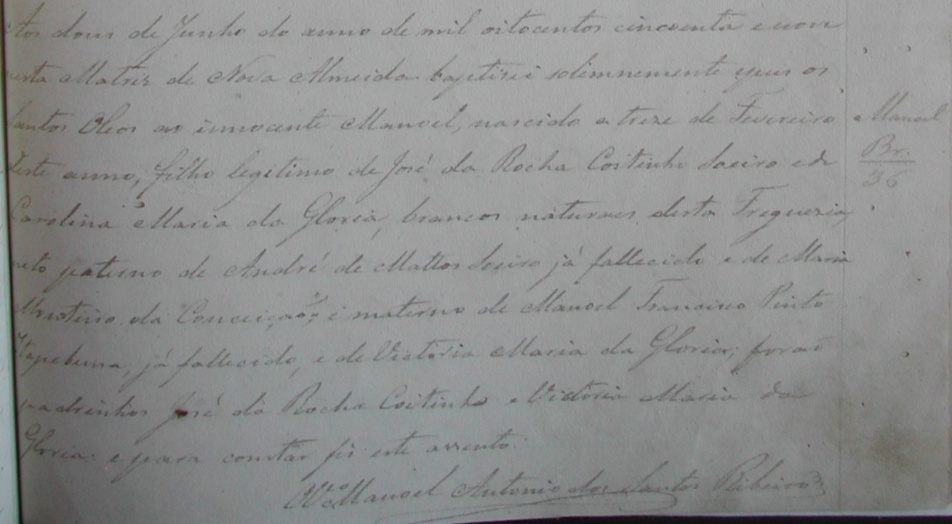 Aos dous de Junho do anno de mil oitocentos cincoenta e nove
nesta Matriz de Nova Almeida baptisei solemnemente e pus os
Santos Oleos ao innocente Manoel, nascido a treze de Fevereiro
deste anno, filho legitimo de José da Rocha Coitinho Soeiro e de
Carolina Maria da Gloria, brancos naturaes desta Freguezia,
neto paterno de André de Mattos Soeiro já fallecido e de Maria
Monteiro da Conceição, e materno de Manoel Francisco Pinto
já fallecido, e de Victoria Maria da Gloria; forão
padrinhos José da Rocha Coitinho e Victoria Maria da
Gloria: e para constar fiz este assento.
Manoel Antonio dos Santos Ribeiro
Manoel
Br.
36